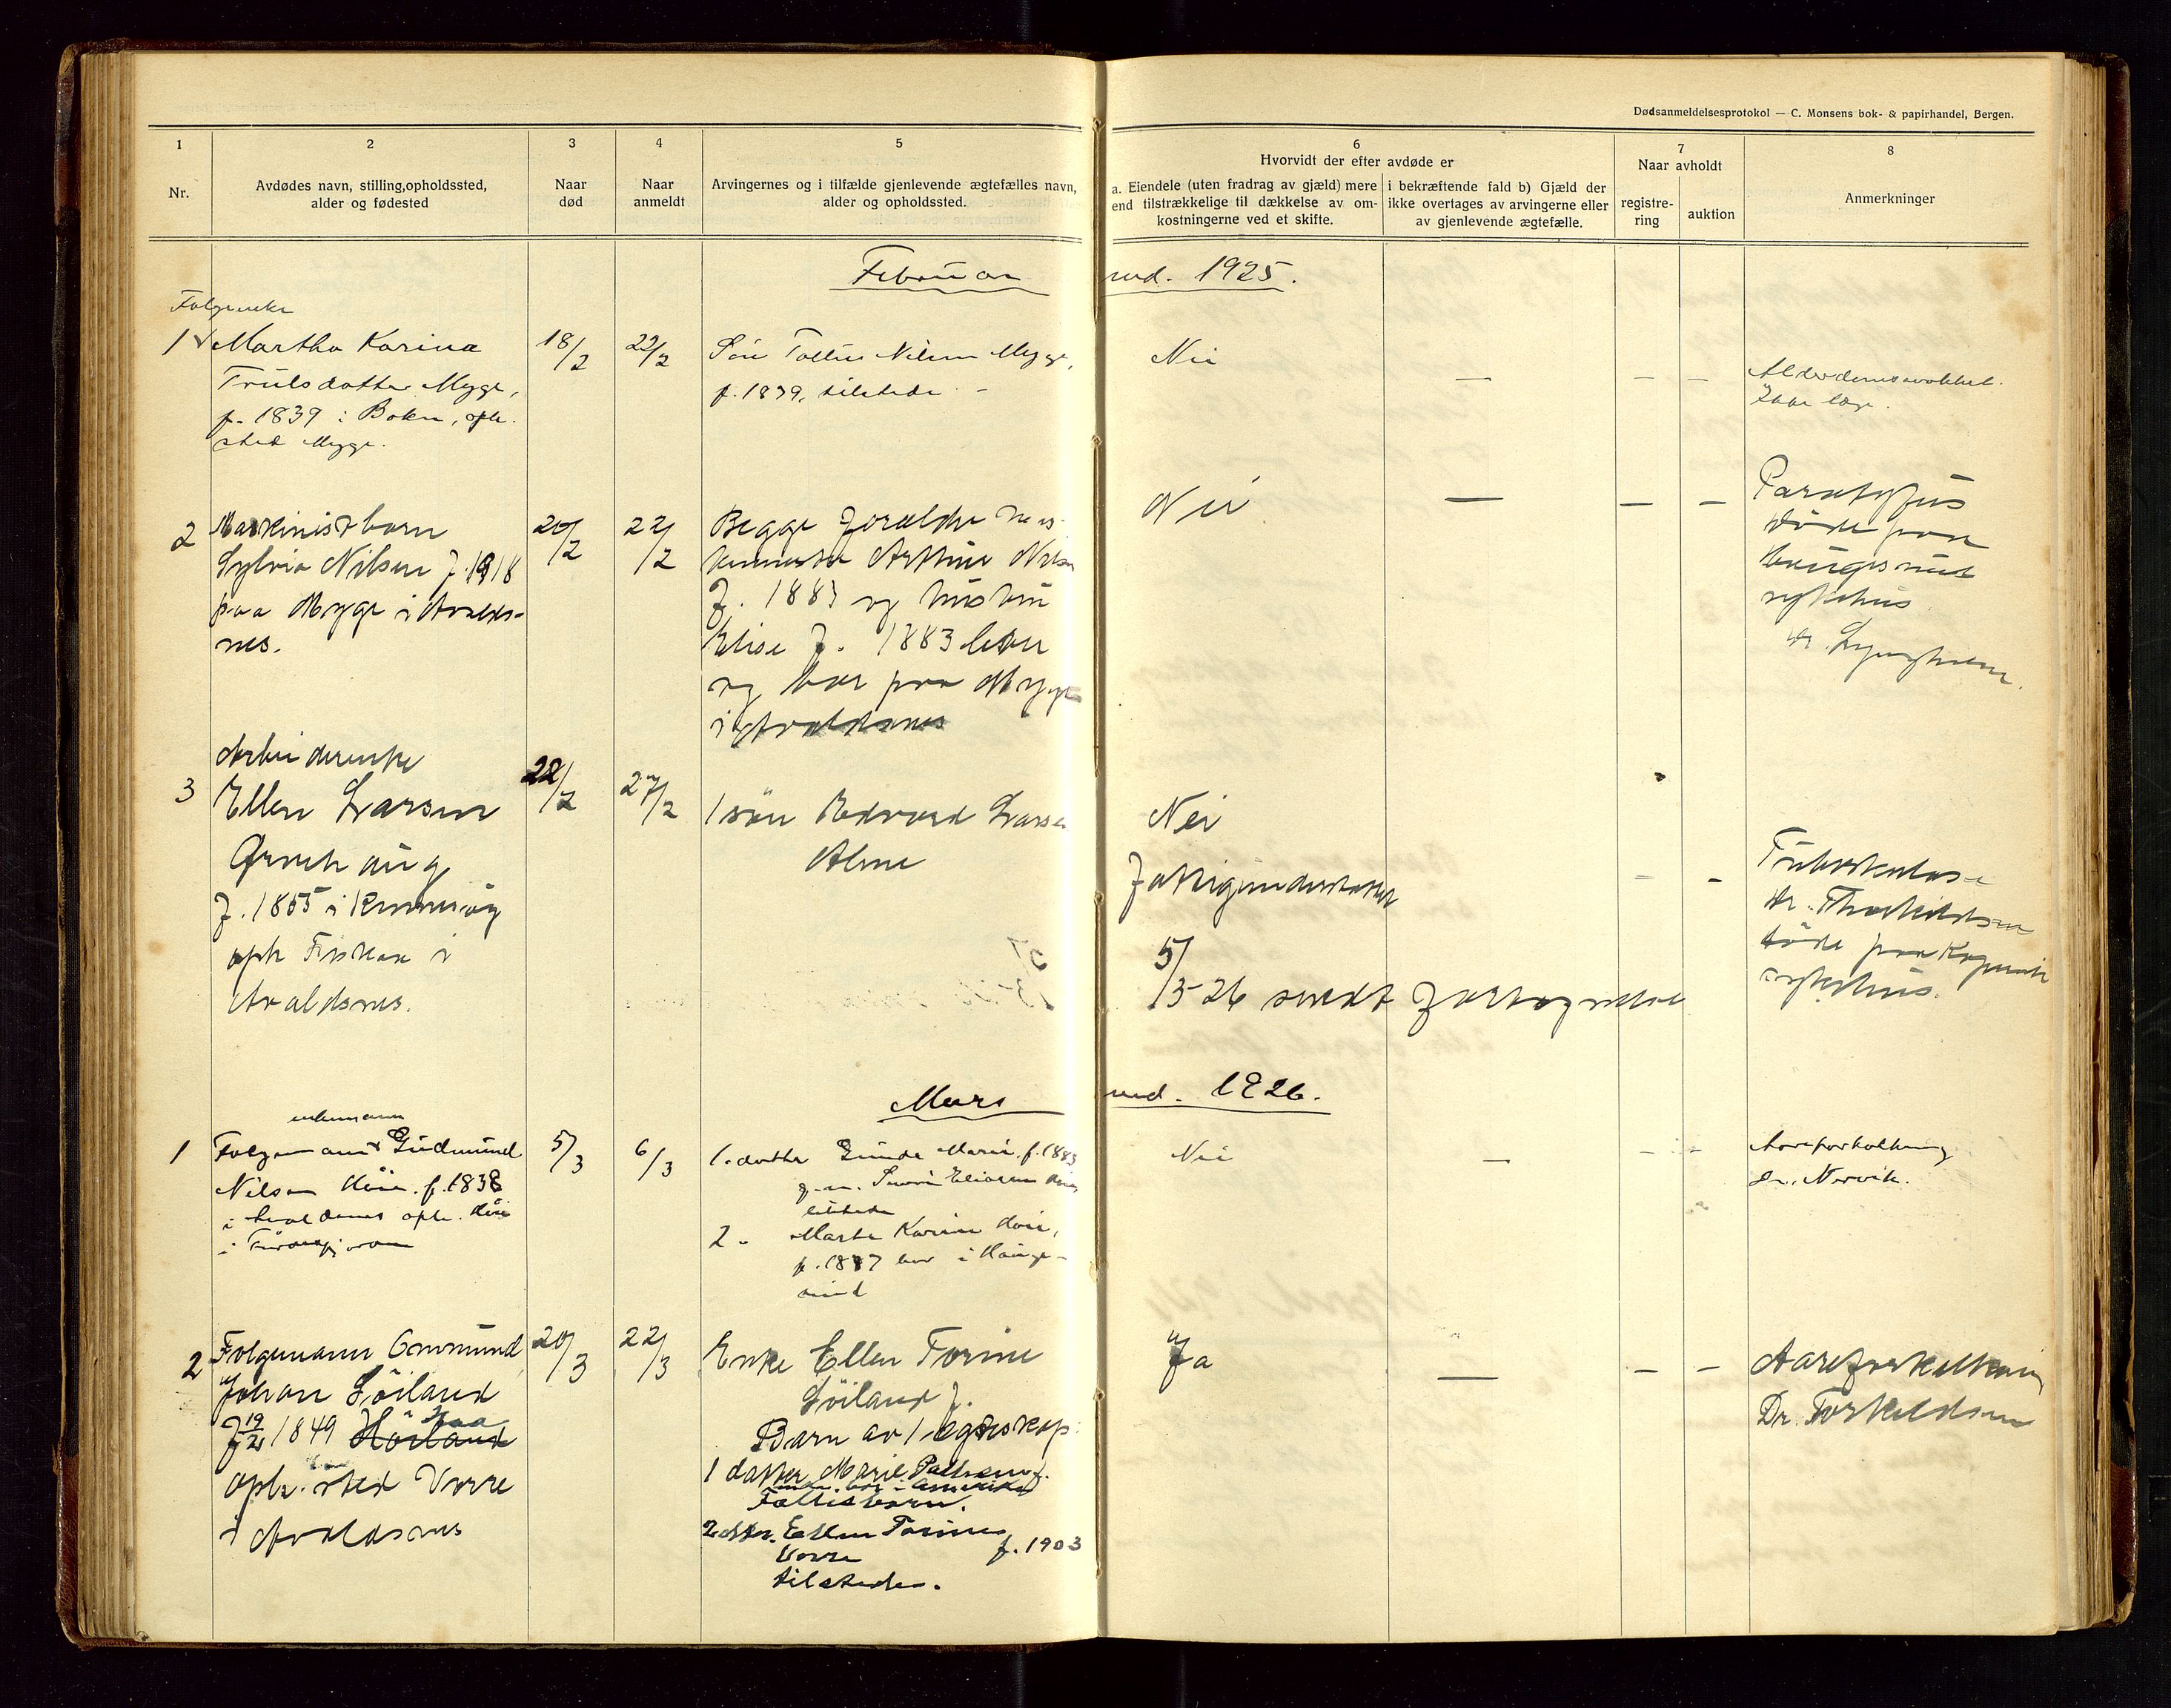 Dødsanmeldelsesprotokol — C. Monsens bok- & papirhandel, Bergen.
1
Nr.
2
Avdødes navn, stilling, opholdssted,
alder og fødested
3
Naar
død
4
Naar
anmeldt
5
Arvingernes og i tilfælde gjenlevende ægtefælles navn,
alder og opholdssted.
6
Hvorvidt der efter avdøde er
a. Eiendele (uten fradrag av gjæld) mere
end tilstrækkelige til dækkelse av om-
kostningerne ved et skifte.
i bekræftende fald b) Gjæld der
ikke overtages av arvingerne eller
av gjenlevende ægtefælle.
7
Naar avholdt
registre-
ring
auktion
8
Anmerkninger
Februar md. 1925.
1
Martha Karina
Trulsdatter Mygge,
f. 1839 i Bokn, oph.
sted Mygge.
18/2
22/2
Nilsen Mygge,
f. 1839, tilstede -
Nei
—
—
—
2
Maskinistbarn
Sylvia Nilsen f. 1918
paa Mygge i Avalds-
nes.
20/2
22/2
Begge forældre mas-
kinmester Arthur Nilsen
f. 1883 og hustru
Elise f. 1883 lever
og bor paa Mygge
i Avaldsnes
Nei
—
—
—
Paratyfus
døde paa
Haugesund
sykehus
dr.
3
Arbeiderenke
Ellen Larsen
f. 1855 i
oph Fiskaa i
Avaldsnes.
22/2
27/2
1 søn Edvard Larsen
Nei
Fattigunderstøttet
5/5 26 sendt
—
—
Tuberkulose
dr. Thorkildsen
døde paa Kopervik
sykehus.
Mars md. 1926.
1
enkemann
Gudmund
Nilsen f. 1838
i Avaldsnes oph.
5/3
6/3
1. datter Marie f. 1883
tilstede
2. Karine
bor i Hauge-
sund
Nei
—
—
—
Aareforkalkning
Dr. Nervik.
2
Folgemann Ommund
Johan Löiland
f 19/2 1849 Hörland
Haa
oph. sted Vorre
i Avaldsnes
20/3
22/3
Enke Ellen Torine
Löiland f.
Barn av 1 egteskap:
1 datter Marie f.
bor i Amerika
Fællesbarn.
2 dtr. Ellen Torine
Vorre f. 1903
tilstede.
Ja
—
—
—
Aareforkalkning
Dr. Torkildsen